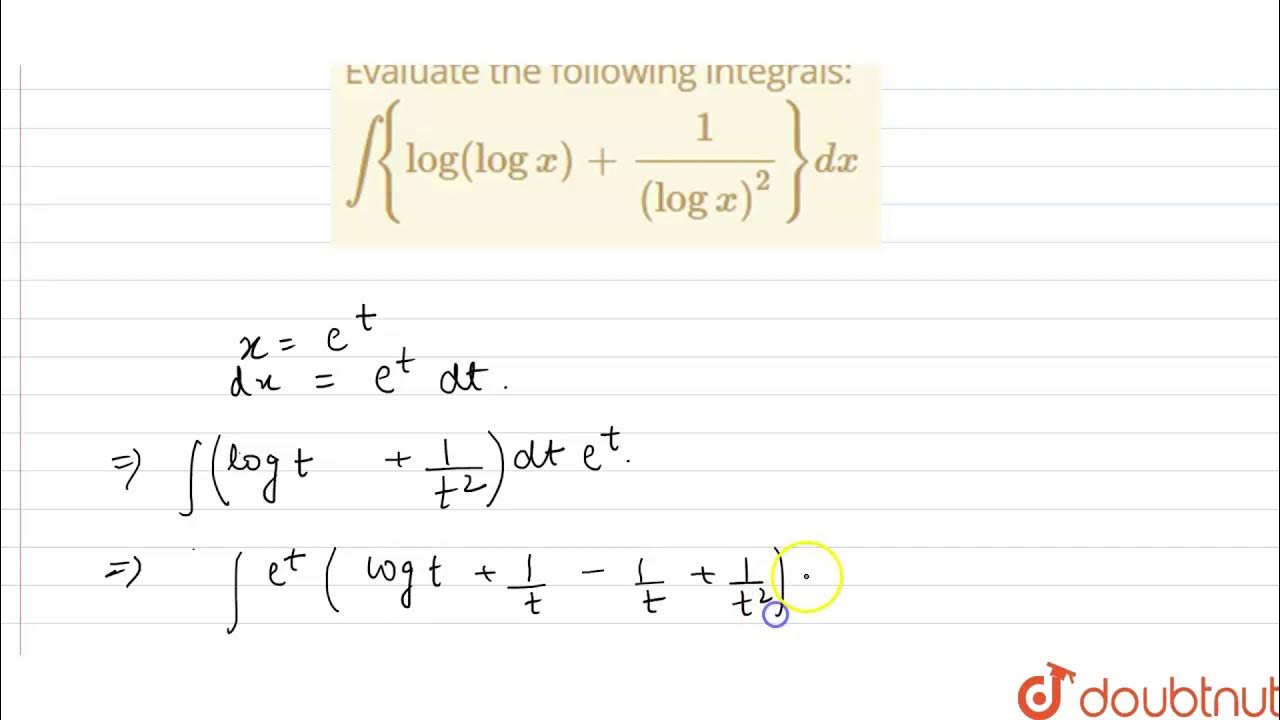 Evaluate the following integrals:
∫{log(log x) + 1/(log x)²}dx
x = e^t
dx = e^t dt.
⇒) ∫(log t + 1/t²)dt e^t.
⇒) ∫ e^t ( log t + 1/t − 1/t + 1/t²) .
doubtnut